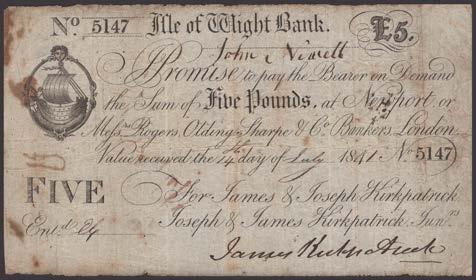 No 5147 Isle of Wight Bank. £5.
John
I Promise to pay the Bearer on Demand
the Sum of Five Pounds, at Newport or
Messrs Rogers, Olding Sharpe & Co. Bankers London.
Value received the 14th day of July 1841 No 5147
FIVE For James & Joseph Kirkpatrick
Entd Joseph & James Kirkpatrick Junrs
James Kirkpatrick